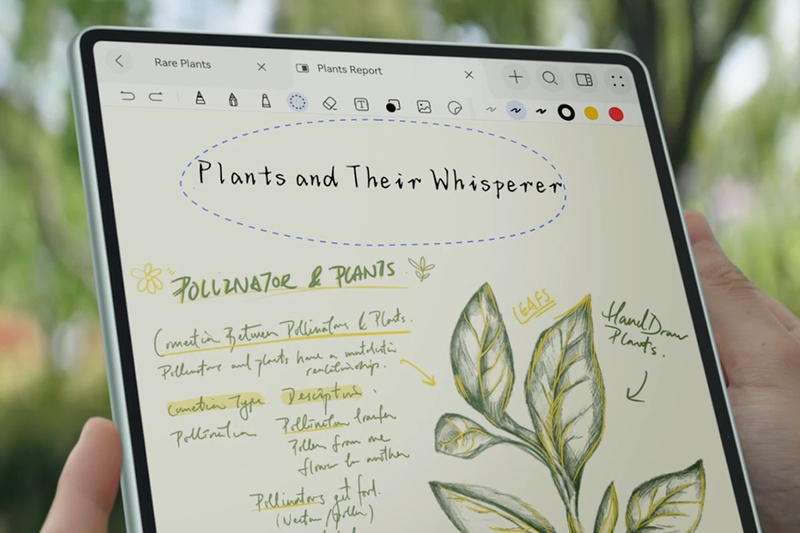 Rare Plants
Plants Report
Plants and Their Whisperer
POLLINATOR & PLANTS
LEAFS
Hand Draw
Plants.
Connection Between Pollinators & Plants.
Pollinators and plants have a
relationship.
Connection Type
Pollination
Pollination transfer
Pollen from one
flower to another
Pollinators get food.
(Nectar/pollen)